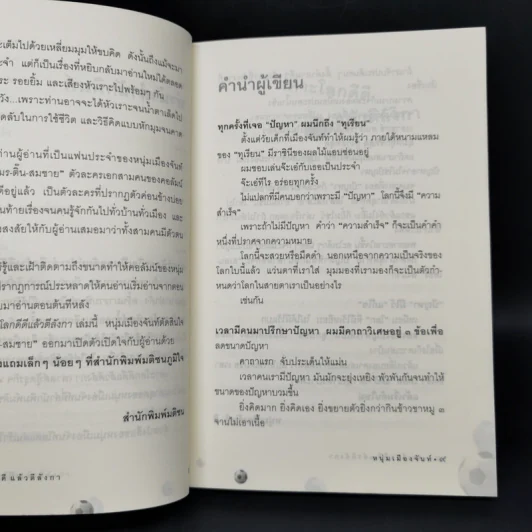 ะเต็มไปด้วยเหลี่ยมมุมให้ขบคิด ดังนั้นถึงแม้จะมา
จำ แต่ก็เป็นเรื่องที่หยิบกลับมาอ่านใหม่ได้ตลอด
ระ รอยยิ้ม และเสียงหัวเราะไปพร้อมๆ กัน
วัง...เพราะท่านอาจจะได้หัวเราะจนน้ำตาเล็ดไป
ดลับในการใช้ชีวิต และวิธีคิดแบบหักมุมจนคาด
านผู้อ่านที่เป็นแฟนประจำของหนุ่มเมืองจันท์
มร-ติ๊น-สมชาย" ตัวละครเอกสามคนของคอลัมน์
ดีอยู่แล้ว เป็นตัวละครที่ปรากฏตัวค่อนข้างบ่อย
นท้ายเรื่องจนคนรู้จักกันไปทั่วบ้านทั่วเมือง และ
งสงสัยให้กับผู้อ่านเสมอมาว่าทั้งสามคนมีตัวตน
รู้และเฝ้าติดตามถึงขนาดทำให้คอลัมน์ของหนุ่ม
ปรากฏการณ์ประหลาดให้คนอ่านเริ่มอ่านจากตอน
มาอ่านตอนต้นทีหลัง
โลกดีดีแล้วตีลังกา เล่มนี้ หนุ่มเมืองจันท์ตัดสินใจ
-สมชาย" ออกมาเปิดตัวเปิดใจกับผู้อ่านด้วย
งแถมเล็กๆ น้อยๆ ที่สำนักพิมพ์มติชนภูมิใจ
สำนักพิมพ์มติชน
ดี แล้วตีลังกา
คำนำผู้เขียน
ทุกครั้งที่เจอ "ปัญหา" ผมนึกถึง "ทุเรียน"
ตั้งแต่วัยเด็กที่เมืองจันท์ทำให้ผมรู้ว่า ภายใต้หนามแหลม
ของ "ทุเรียน" มีราชินีของผลไม้แอบซ่อนอยู่
ผมชอบเล่นจ๊ะเอ๋กับเธอเป็นประจำ
จ๊ะเอ๋ทีไร อร่อยทุกครั้ง
ไม่แปลกที่มีคนบอกว่าเพราะมี "ปัญหา" โลกนี้จึงมี "ความ
สำเร็จ"
เพราะถ้าไม่มีปัญหา คำว่า "ความสำเร็จ" ก็จะเป็นคำคำ
หนึ่งที่ปราศจากความหมาย
โลกนี้จะสวยหรือมีดดำ นอกเหนือจากความเป็นจริงของ
โลกใบนี้แล้ว แว่นตาที่เราใส่ มุมมองที่เรามองก็จะเป็นตัวกำ-
หนดว่าโลกในสายตาเราเป็นอย่างไร
เช่นกัน
เวลามีคนมาปรึกษาปัญหา ผมมีคาถาวิเศษอยู่ ๓ ข้อเพื่อ
ลดขนาดปัญหา
คาถาแรก จับประเด็นให้แม่น
เวลาคนเรามีปัญหา มันมักจะยุ่งเหยิง พัวพันกันจนทำให้
ขนาดของปัญหาบวมขึ้น
ยิ่งคิดมาก ยิ่งคิดเอง ยิ่งขยายตัวยิ่งกว่ากินข้าวขาหมู ๓
จานไม่เอาเนื้อ
หนุ่มเมืองจันท์•๙